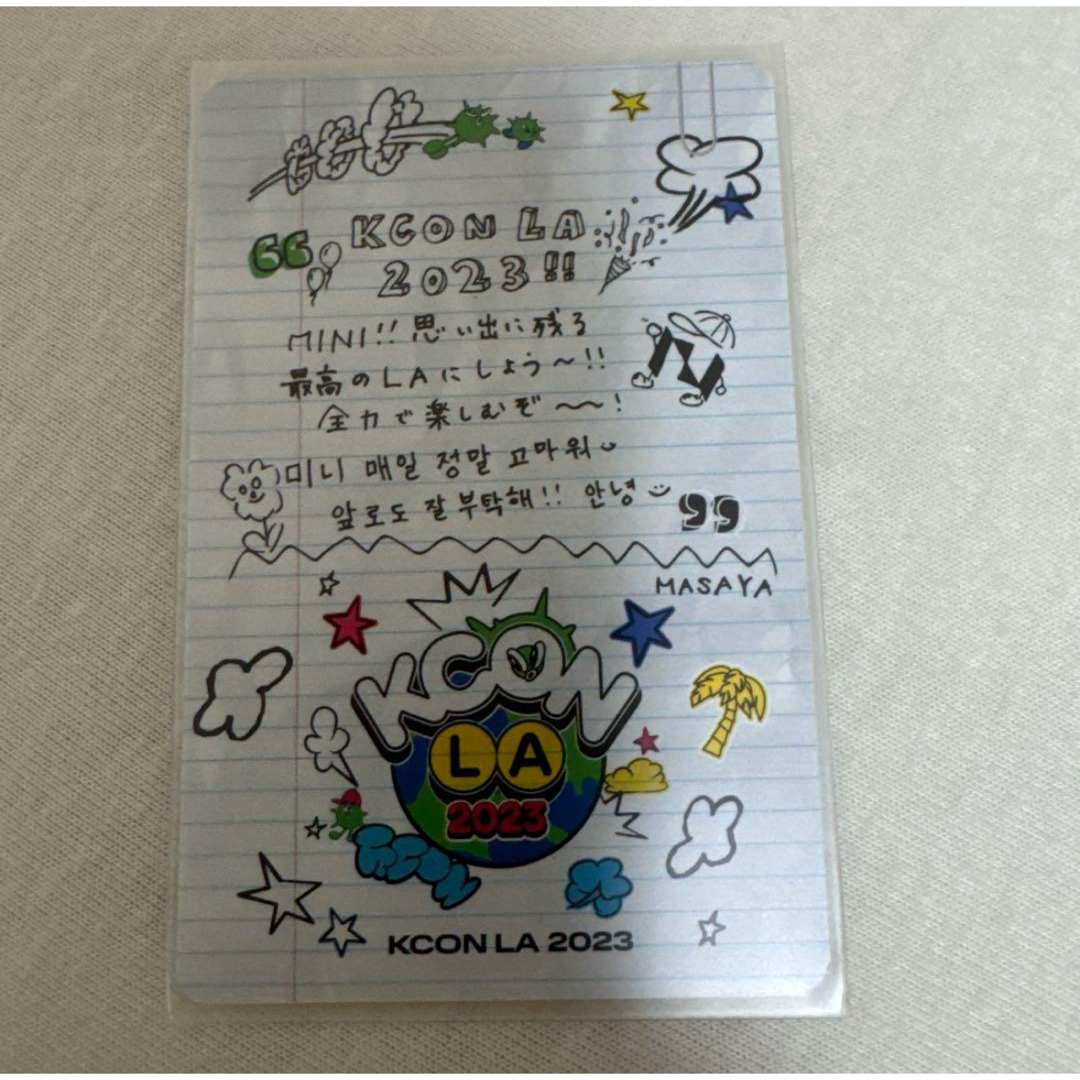 KCON LA
2023!!
MINI!! 思い出に残る
最高のLAにしよう〜!!
全力で楽しむぞ〜〜!
미니 매일 정말 고마워
앞로도 잘 부탁해!! 안녕
MASAYA
KCON
LA
2023
KCON
KCON LA 2023